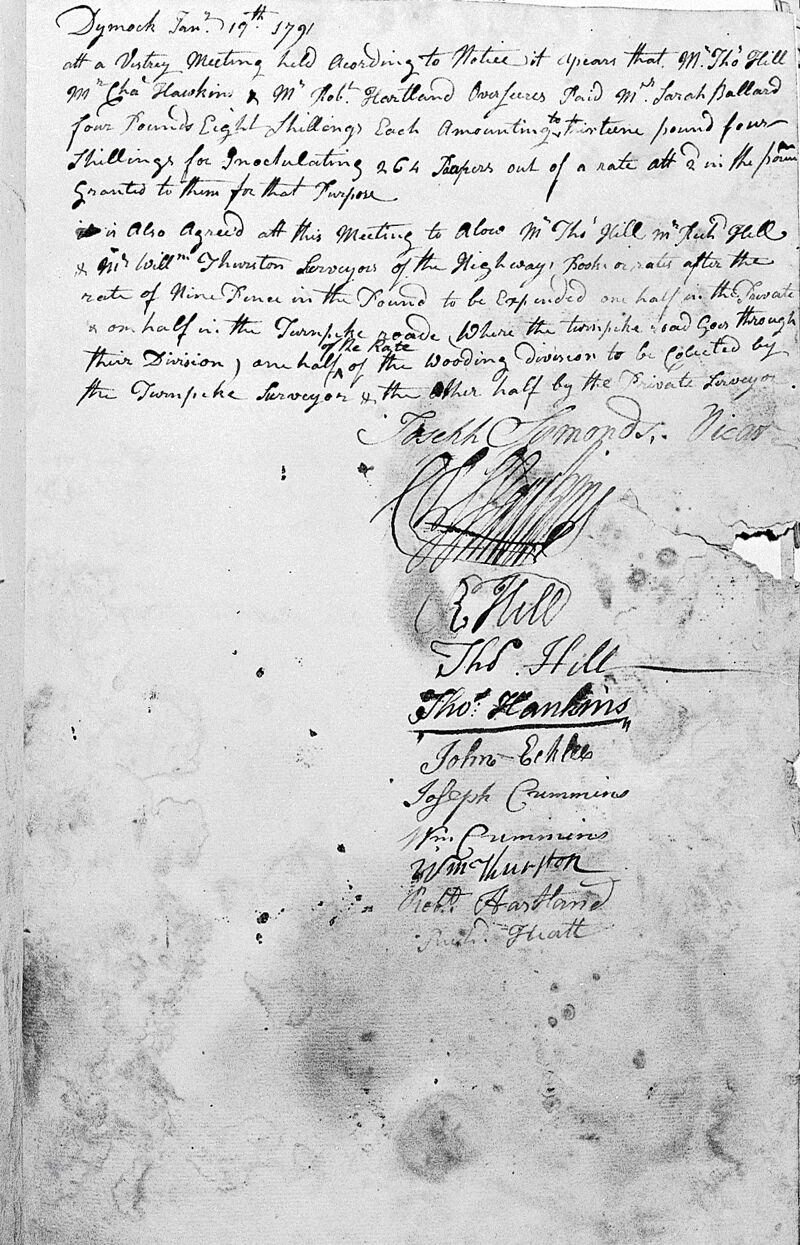 Dymock Janr. 19th 1791
att a Vestrey Meeting held Acording to Notice it apears that Mr. Thos Hill
Mr Chas Hawkins & Mr Robt. Hartland Overseeres Paid Mrs Sarah Ballard
four Pounds Eight Shillings Each Amounting to thirtune pound four
Shillings for Inochulating 264 Paapers out of a rate att 2 in the poun
Granted to them for that Purpose
it is Also Agreed att this Meeting to Alow Mr Thos Hill Mr Richd Hill
& Mr Willm Thurston Surveyors of the Highways Books or rates after the
rate of Nine Pence in the Pound to be Expended one half in the Private
& on half in the Turnpike roade (Where the turnpike road Goes through
their Division) one half of the Rate of the Wooding division to be Colected by
the Turnpike Surveyor & the Other half by the Private Surveyor.
Joseph Symonds. Vicar
R Hill
Thos. Hill
Thos. Hankins
John Eckles
Joseph Cummins
Wm Cummins
Wm Thurston
Robt. Hartland
Heatt